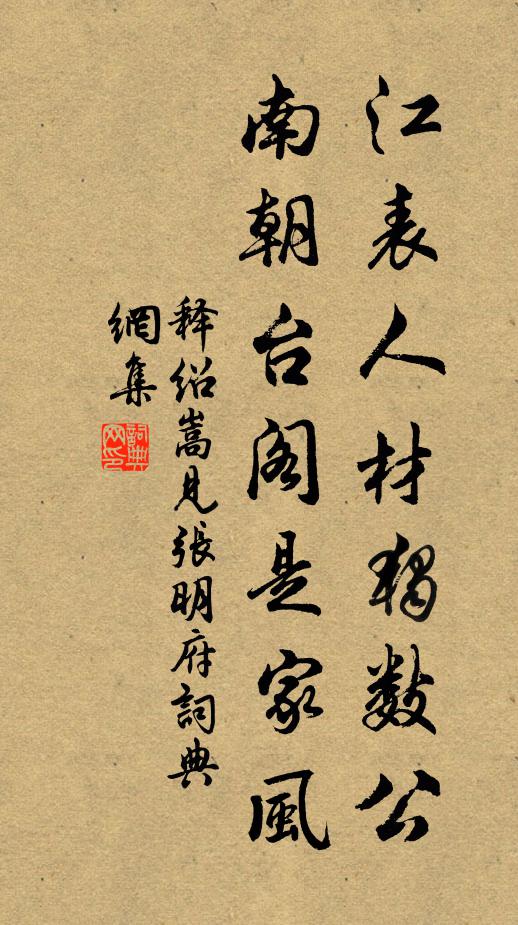 江表人材獨數公
南朝台阁是家風
释绍嵩見張明府詞典
網集
詞典網印